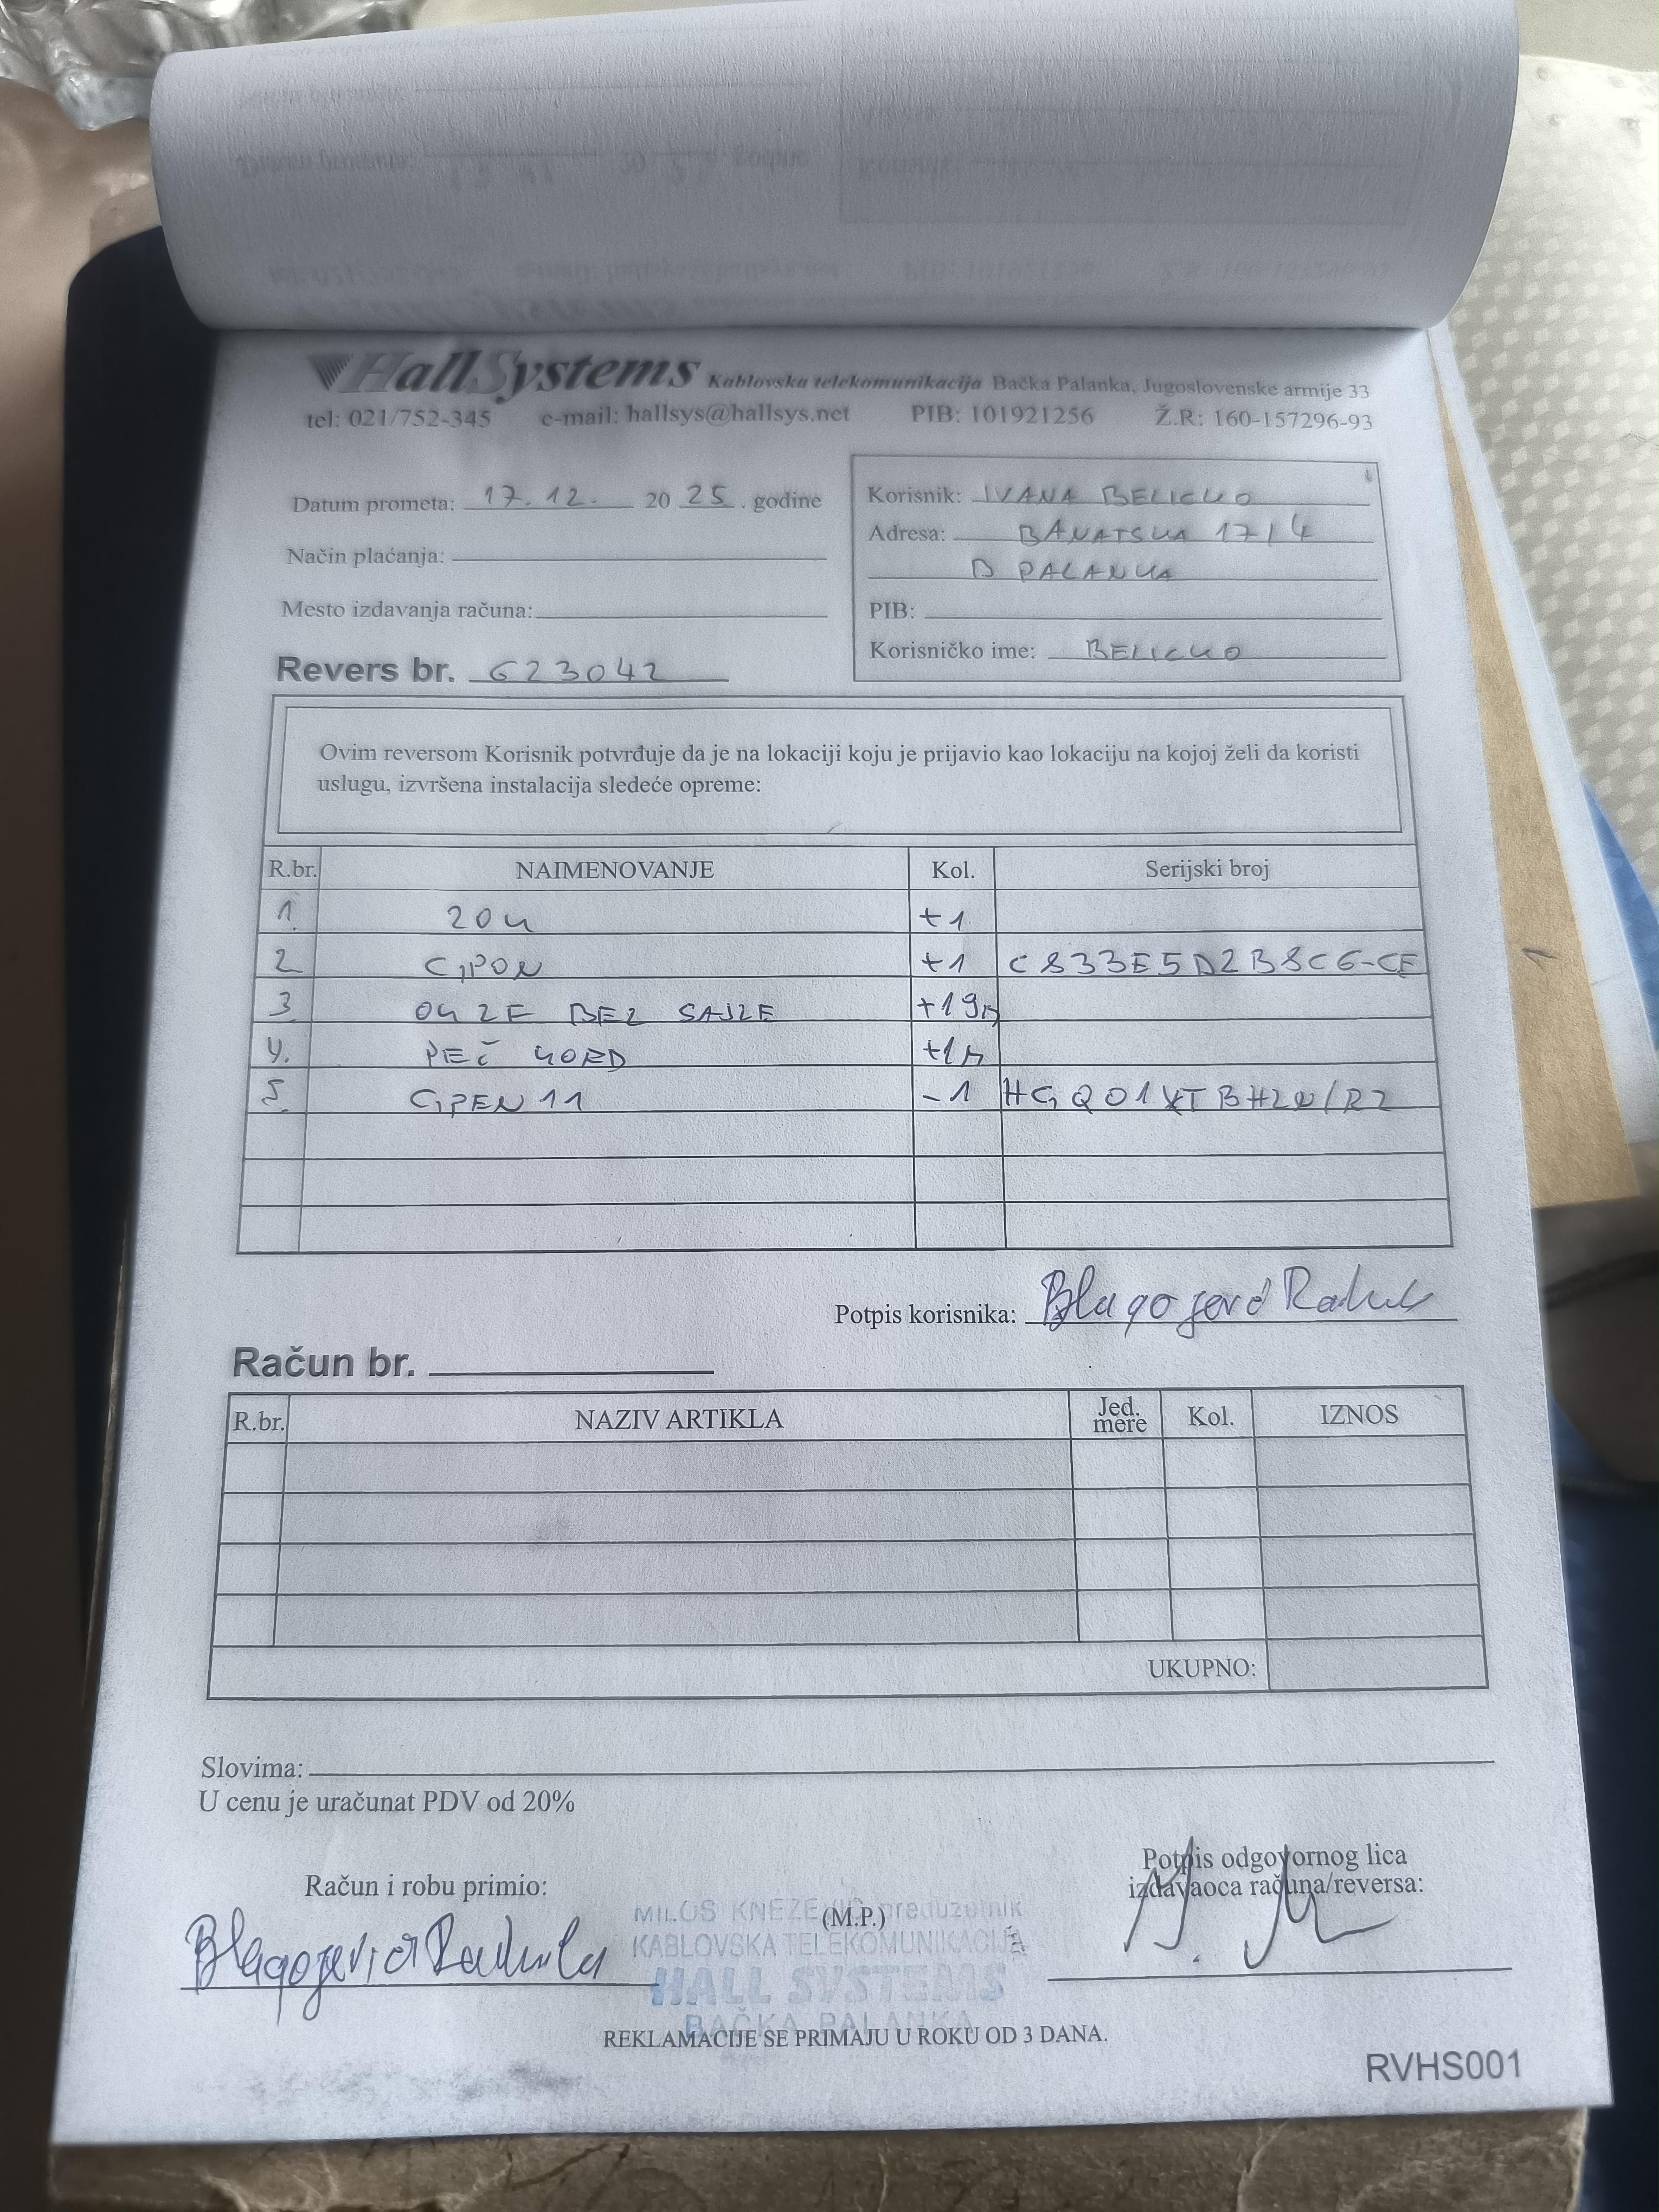 HallSystems Kablovska telekomunikacija Bačka Palanka, Jugoslovenske armije 33
tel: 021/752-345 e-mail: hallsys@hallsys.net PIB: 101921256 Ž.R: 160-157296-93
Datum prometa: 17.12. 20 25. godine
Način plaćanja:
Mesto izdavanja računa:
Revers br. 623042
Korisnik: IVANA BELICKO
Adresa: BANATSKA 17/4
B PALANKA
PIB:
Korisničko ime: BELICKO
Ovim reversom Korisnik potvrđuje da je na lokaciji koju je prijavio kao lokaciju na kojoj želi da koristi
uslugu, izvršena instalacija sledeće opreme:
R.br. NAIMENOVANJE Kol. Serijski broj
1. +1
2 GPON +1 C833E5D2B8C6-CF
3 BEZ SAJLE +19m
4. PEČ KORD +1m
5. GPEN11 -1
Potpis korisnika: Blagojević
Račun br.
R.br. NAZIV ARTIKLA Jed. mere Kol. IZNOS
UKUPNO:
Slovima:
U cenu je uračunat PDV od 20%
Račun i robu primio:
Blagojević
(M.P.)
MILOŠ KNEŽEVIĆ preduzetnik
KABLOVSKA TELEKOMUNIKACIJA
HALL SYSTEMS
BAČKA PALANKA
Potpis odgovornog lica
izdavaoca računa/reversa:
REKLAMACIJE SE PRIMAJU U ROKU OD 3 DANA.
RVHS001